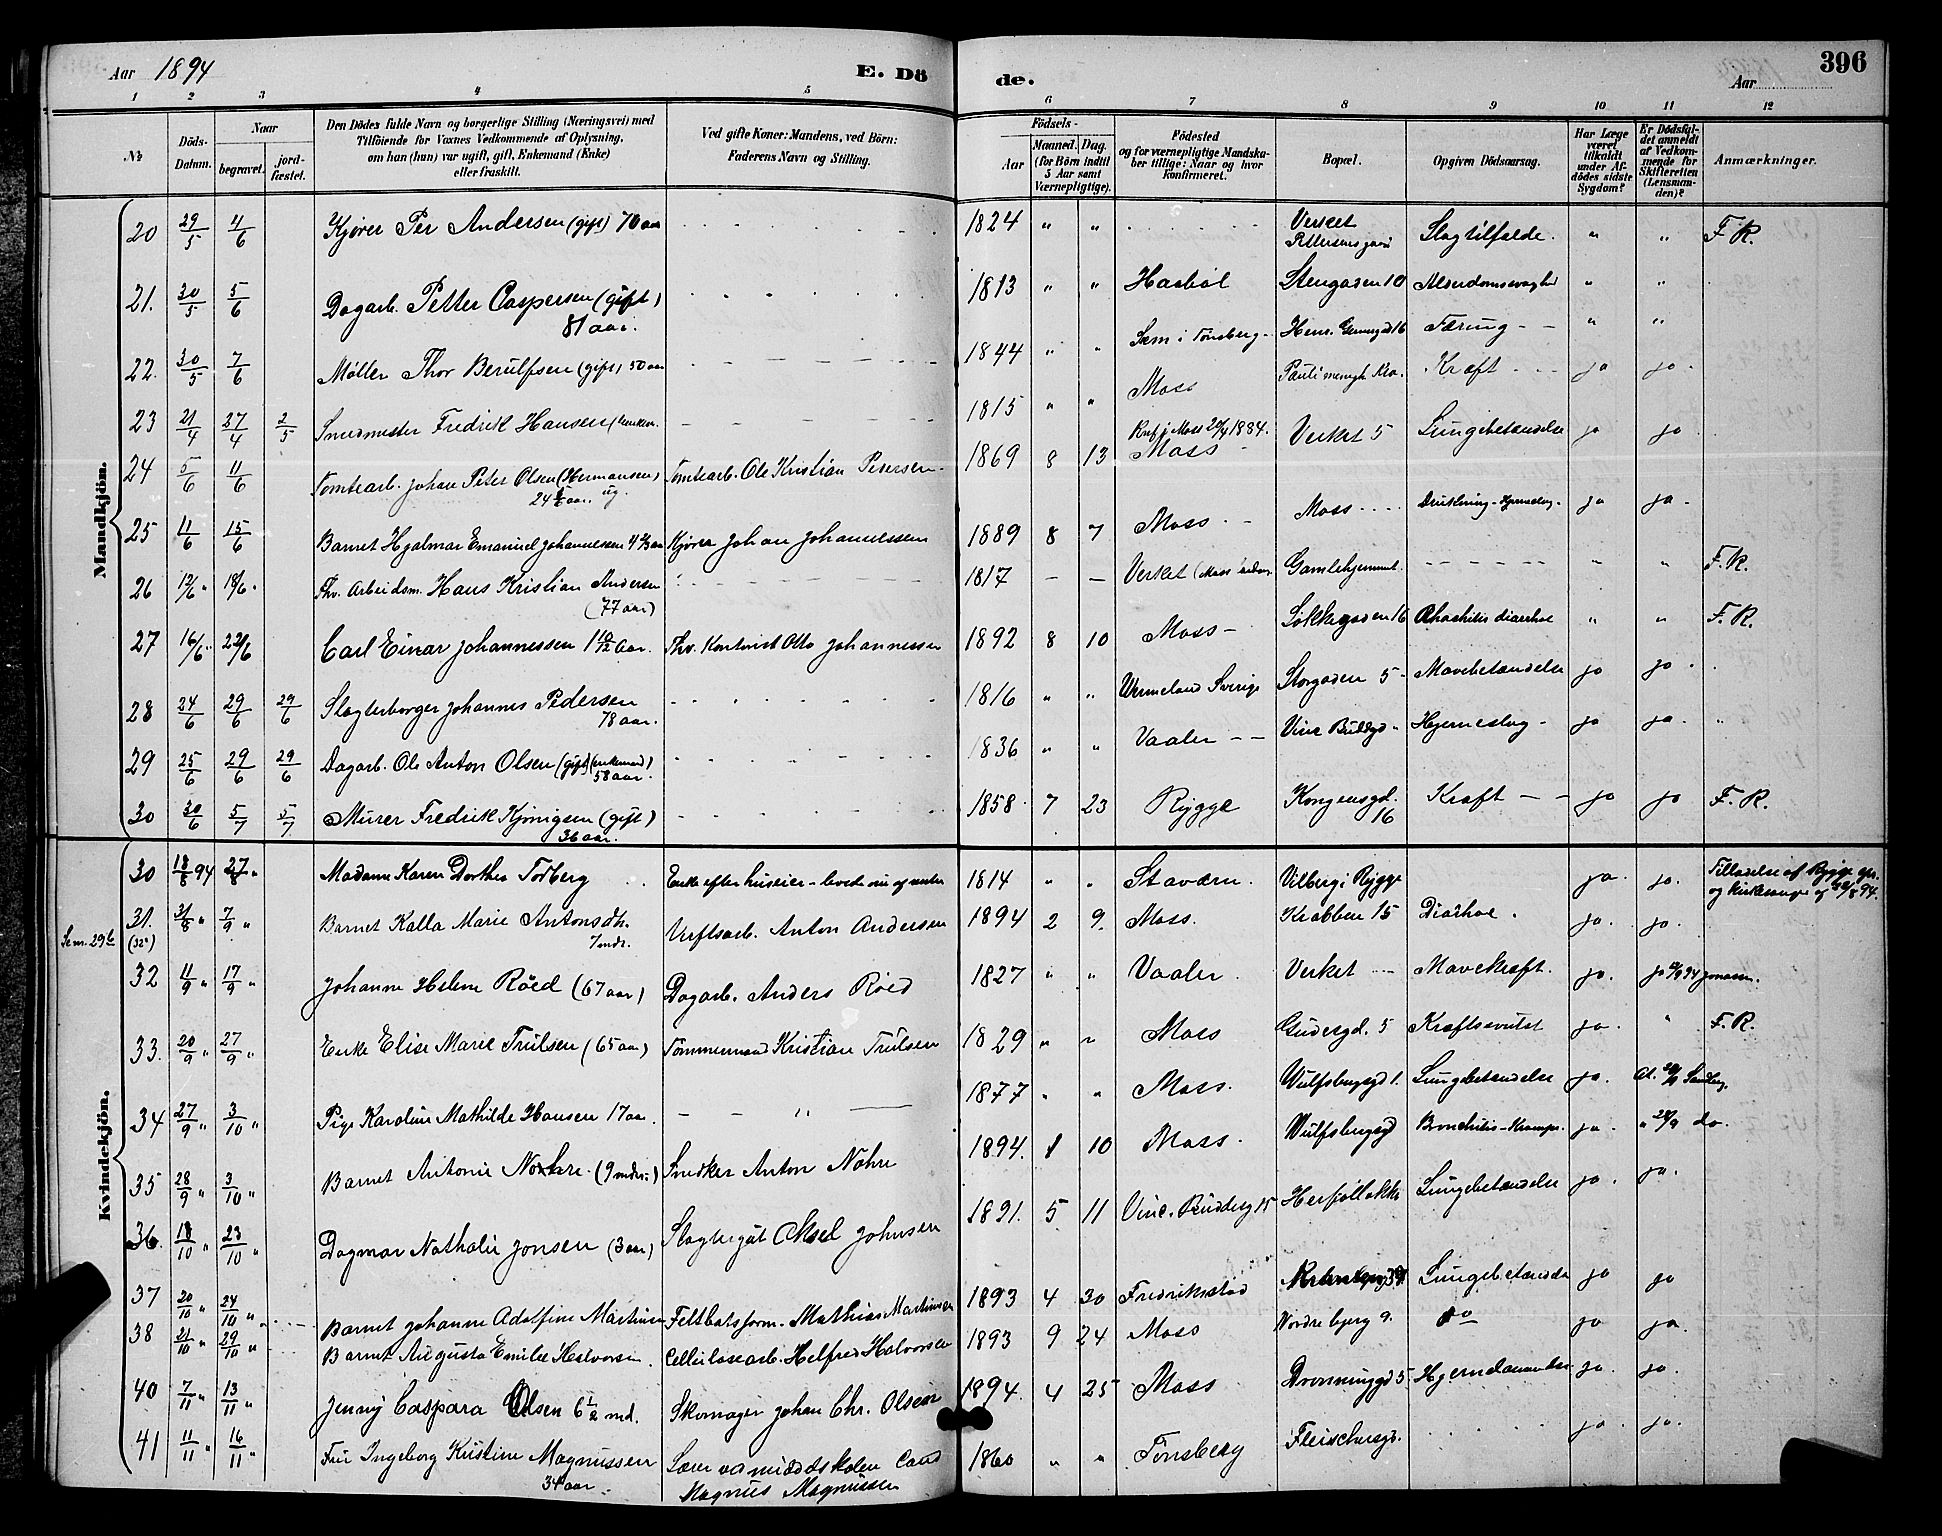 Aar 1894
E. Dö
de.
Aar
396
1 2 3 4 5 6 7 8 9 10 11 12
№
Döds-Datum.
Naar
begravet.
jord-fæstet.
Den Dödes fulde Navn og borgerlige Stilling (Næringsvei) med
Tilföiende for Voxnes Vedkommende af Oplysning,
om han (hun) var ugift, gift, Enkemand (Enke)
eller fraskilt.
Ved gifte Koner: Mandens, ved Börn:
Faderens Navn og Stilling.
Födsels-
Aar
Maaned. Dag.
(for Börn indtil
5 Aar samt
Værnepligtige).
Födested
og for værnepligtige Mandska-
ber tillige: Naar og hvor
konfirmeret.
Bopæl.
Opgiven Dödsaarsag.
Har Læge
været
tilkaldt
under Af-
dödes sidste
Sygdom?
Er Dödsfal-
det anmeldt
af Vedkom-
mende for
Skifteretten
(Lensman-
den)?
Anmærkninger.
Mandkjön.
20 29/5 4/6 Kjører Per Andersen (gift) 70 aar 1824 " " Verket Pettersensgaard Slagtilfælde. " " F.R.
21. 30/5 5/6 Dagarb. Petter Caspersen (gift) 81 aar. 1813 " " Haabøl Stengaden 10 Alderdomssvaghed " "
22. 30/5 7/6 Møller Thor Berulfsen (gift) 50 aar 1844 " " Sem i Tønsberg - Henr. Gernersgd 16 Tæring - - " "
23 21/4 27/4 2/5 Smedmester Fredrik Hansen 1815 " " Moss Kræft ja ja.
24 5/6 11/6 Tomtearb. Johan Peter Olsen (Hermansen) 24 ½ aar. ug. Tomtearb. Ole Kristian Pedersen 1869 8 13 Moss Verket 5 Lungebetændelse ja ja
25 11/6 15/6 Barnet Hjalmar Emanuel Johannessen Kjører Johan Johannessen 1889 8 7 Moss Moss ja ja
26 12/6 18/6 Fhv. Arbeidsm. Hans Kristian Andersen (77 aar) 1817 - - Verket Gamlehjemmet " " F.R.
27 16/6 22/6 Carl Einar Johannessen 1 10/12 aar. Fhv. Kontorist Otto Johannessen 1892 8 10 Moss - Løkkegaden 16 Rhachitis diarrhoe " " F.R.
28 24/6 29/6 29/6 Slagterborger Johannes Pedersen 78 aar. 1816 " " Wermeland Sverige Storgaden 5 Mavebetændelse ja ja.
29 25/6 29/6 29/6 Dagarb. Ole Anton Olsen (gift) (enkemand) 58 aar. 1836 " " Vaaler - - Vinc Buddgd. Hjerneslag - ja ja. "
30 30/6 5/7 5/7 Murer Fredrik Kjønigsen (gift) 36 aar. 1858 7 23 Rygge Kongensgd. 16 Kræft - - ja ja F.R.
Kvindekjön.
30 18/8 94 27/8 " Madame Karen Dorthea Torberg Enke efter huseier - levede 1814 " " Stavern. Vilberg i Rygge ja. ja. Tilladelse af Rygge
31. 31/8 " 7/9 " Barnet Kalla Marie Antonsdtr. 7 mdr. Verftsarb. Anton Andersen 1894 2 9. Moss. Krabben 15 Diarhoe. ja. ja.
32 11/9 " 17/9 " Johanne Helene Röed (67 aar) Dagarb. Anders Röed 1827 " " Vaaler. Verket Mavekræft. ja. ja
33. 20/9 " 27/9 " Enke Elise Marie Trulsen (65 aar) Tømmermand Kristian Trulsen 1829 " " Moss Gudesgd. 5 Kræftsvulst ja. " F.R.
34 27/9 " 3/10 " Pige Karoline Mathilde Hansen 17 aar. - - " - 1877 " " Moss. Wulfsbergsgd 1. Lungebetændelse ja.
35 28/9 " 3/10 " Barnet Antonie Nohre (9 mdr.) Snedker Anton Nohre 1894. 1 10 Moss. Wulfsbergsgd Bronchitis - Krampe. ja. " 28/9 do.
36. 18/10 " 23/10 " Dagmar Nathalie Jonsen (3 aar) Slagtergut Aksel Johnsen 1891. 5 11 Vinc. Buddesg 15 Herføllokka Lungebetændelse ja. ja.
37 20/10 " 24/10 " Barnet Johanne Adolfine Martinsen Feltbatsform. Mathias Martinsen 1893 4 30 Fredrikstad Lungebetændelse ja ja
38 21/10 " 29/10 " Barnet Augusta Emilie Halvorsen. Celluløsearb. Helfred Halvorsen 1893 9 24 Moss Nordre bjerg 9. do ja ja.
40 7/11 " 13/11 " Jenny Caspara Olsen 6 ½ md. Skomager Johan Chr. Olsen 1894. 4 25 Moss Dronninggd 5. ja. ja.
41 11/11 " 16/11 " Frue Ingeborg Kristine Magnussen 34 aar. Lærer ved middelskolen Cand Magnus Magnussen 1860 " " Tønsberg Fleischersgd. ja. ja.